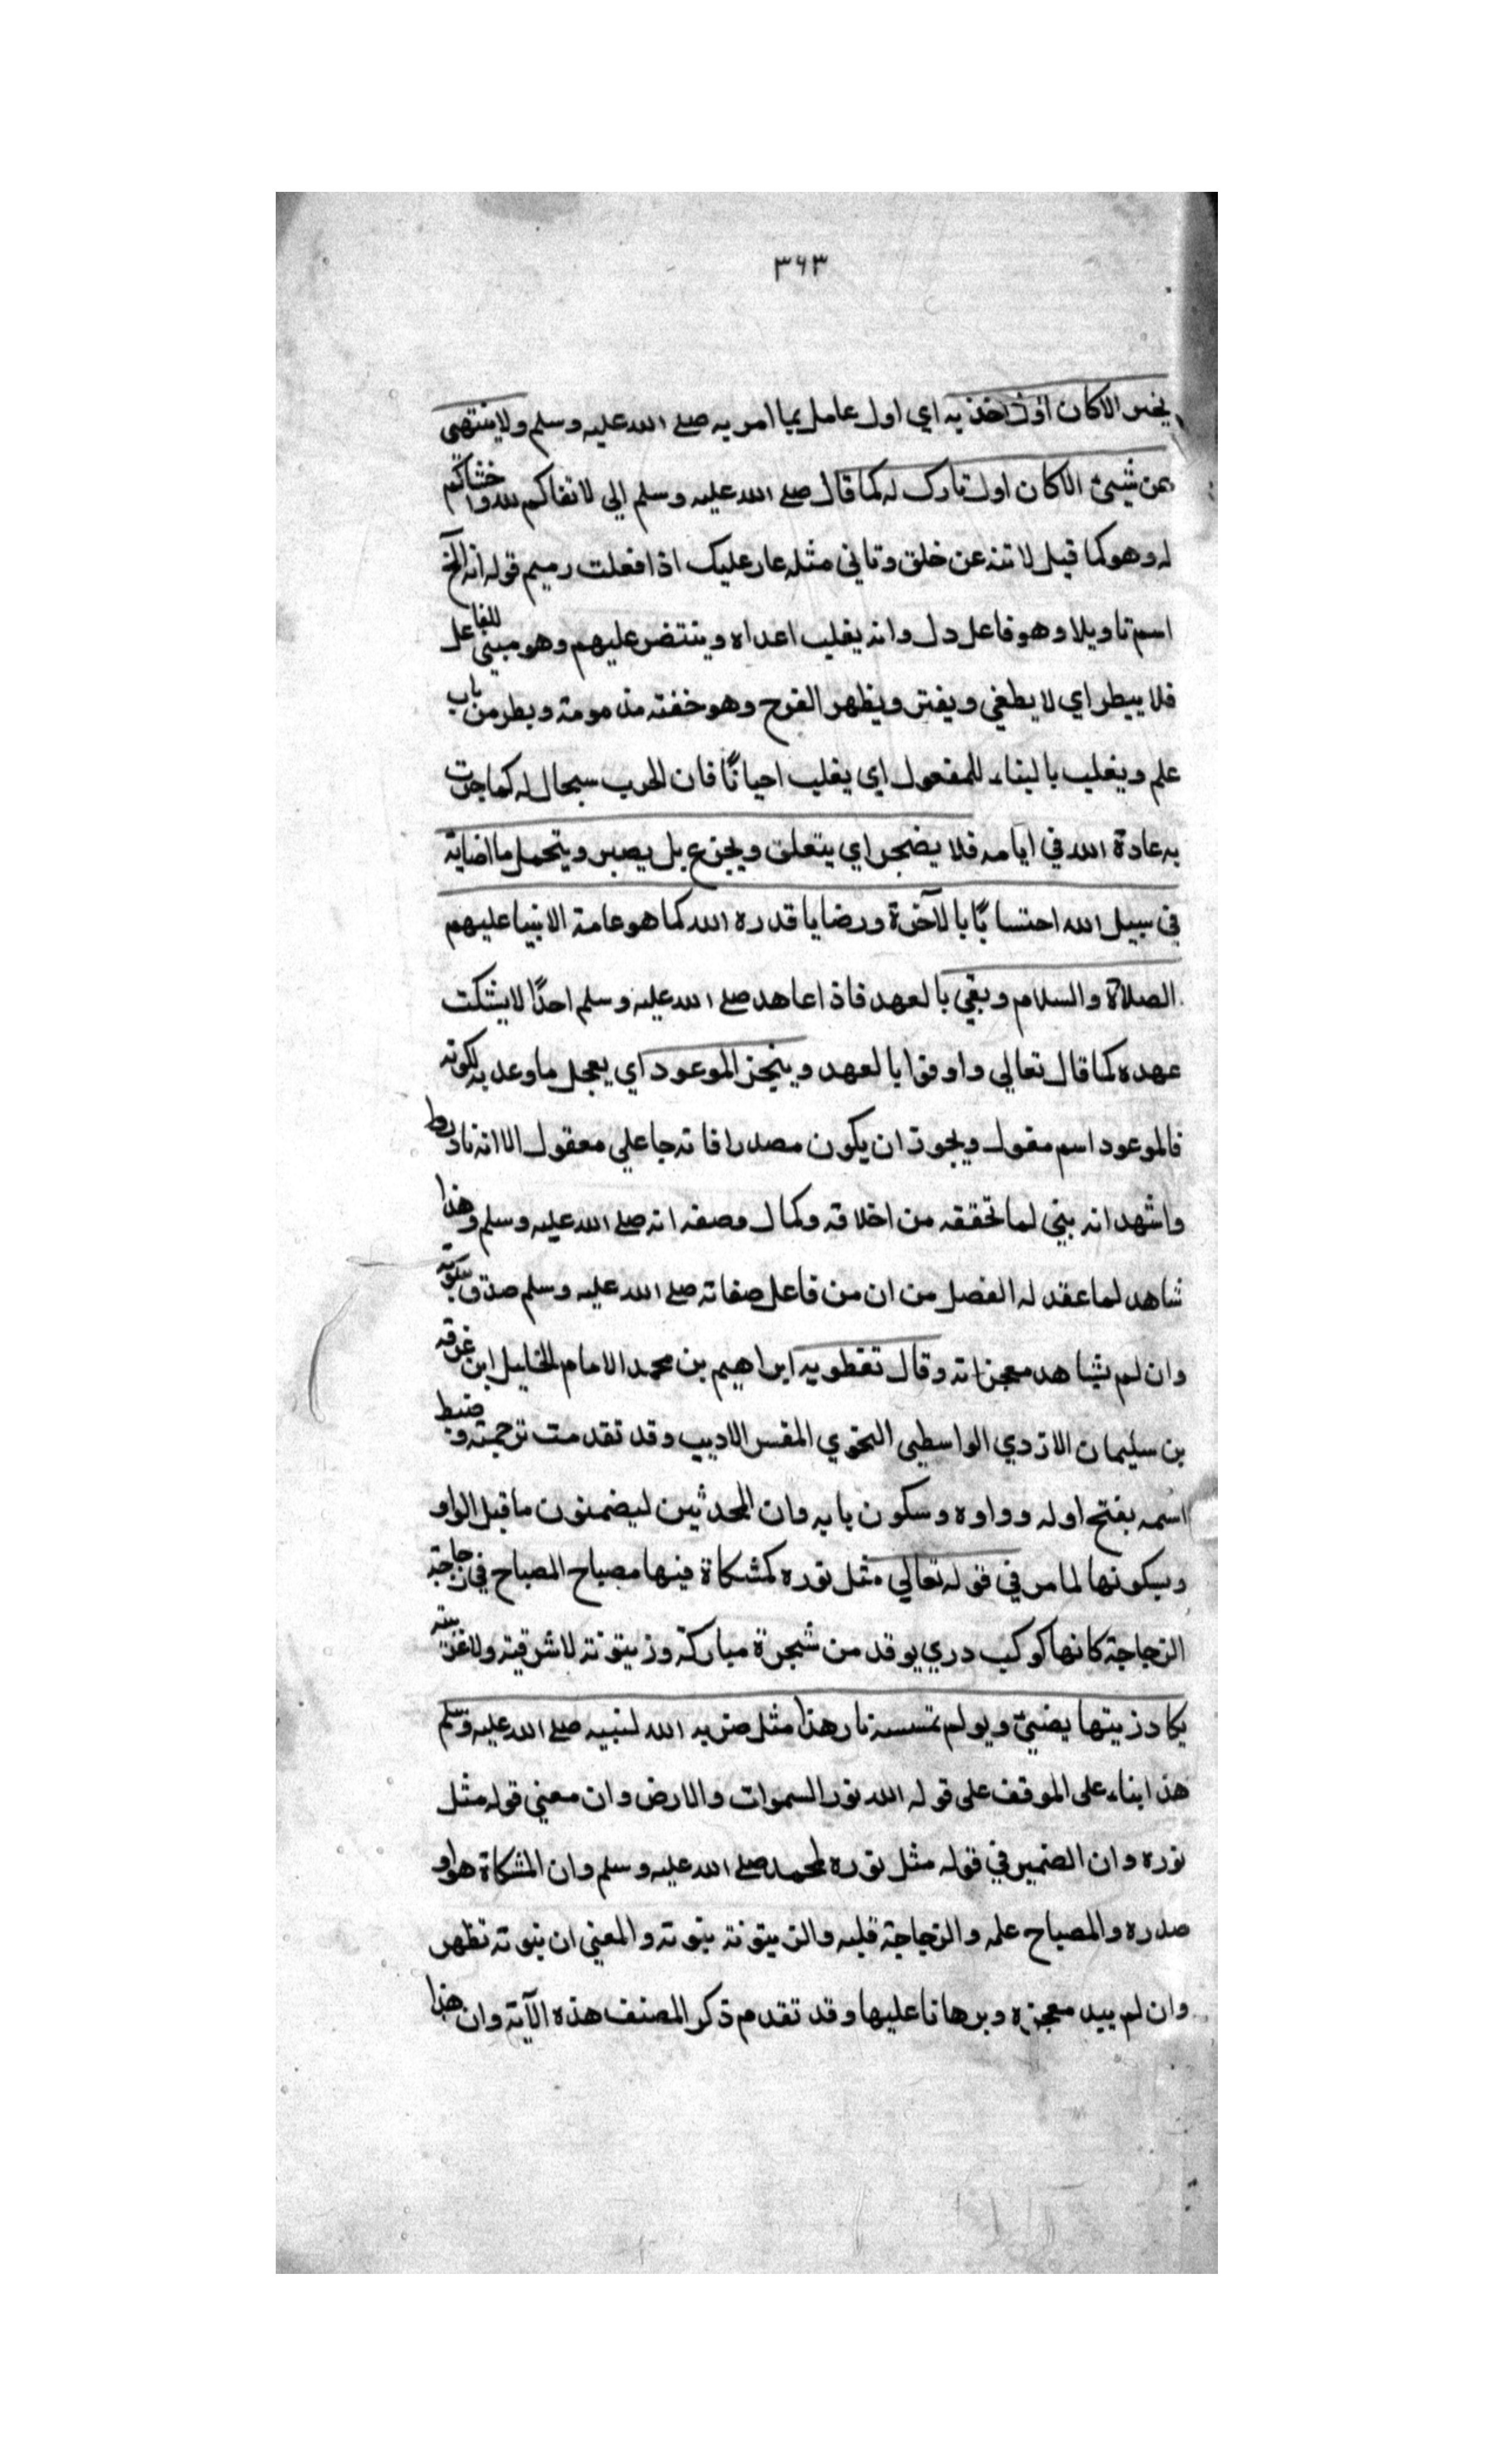 ٣٦٣
بخير الاكان اول اخذ به اي اول عامل بما امر به صلى الله عليه وسلم ولا ينتهى
عن شيئ الاكان اول تارك له كما قال صلى الله عليه وسلم اني لاتقاكم لله واخشاكم
له وهو كما قيل لا تنه عن خلق وتاتي مثله عار عليك اذا فعلت رميم قوله انه الخ
اسم تاويلا وهو فاعل دل وانه يغلب اعداه وينتضر عليهم وهو مبني للفاعل
فلا يبطر اي لا يطغي ويفتر ويظهر الفرح وهو خفته مذمومة وبطر من باب
علم ويغلب بالبناء للمفعول اي يغلب احيانًا فان الحرب سجال له كما جرت
به عادة الله في ايامه فلا يضجر اي يتعلق ويجزع بل يصبر ويتحمل ما اضابه
في سبيل الله احتسابًا بالآخرة ورضا يا قدره الله كما هو عامة الانبيا عليهم
الصلاة والسلام وبقي بالعهد فاذا عاهد صلى الله عليه وسلم احدًا لا ينكث
عهده كما قال تعالي واوفوا بالعهد وينجز الموعود اي يعجل ما وعد به لكونه
فالموعود اسم مفعول ويجوز ان يكون مصدرا فانه جا علي معقول الا انه نادر
واشهد انه بني لما تحققه من اخلاقه وكمال وصفه انه صلى الله عليه وسلم وهذا
شاهد لما عقد له الفصل من ان من فاعل صفاته صلى الله عليه وسلم صدق بنبوته
وان لم يشاهد معجزاته وقال تفطويه ابراهيم بن محمد الامام الخليل ابن عرفه
بن سليمان الازدي الواسطي النحوي المفسر الاديب وقد تقدمت ترجمته وضبط
اسمه بفتح اوله وواوه وسكون يايه وان المحدثين ليضمنون ما قبل الواو
وبيكونها لما مر في قوله تعالي مثل نوره كمشكاة فيها مصباح المصباح في زجاجة
الزجاجة كانها كوكب دري يوقد من شجرة مباركة وزيتونة لا شرقية ولا غربية
يكاد زيتها يضيئ ويولم تمسسه نار هذا مثل ضربه الله لنبيه صلى الله عليه وسلم
هذا بناء على الموقف على قوله الله نور السموات والارض وان معني قوله مثل
نوره وان الضمير في قوله مثل نوره لمحمد صلى الله عليه وسلم وان المشكاة هواو
صدره والمصباح علمه والزجاجة قلبه والزيتونة بنوته والمعني ان بنوته تظهر
وان لم يبد معجزه وبرهانا عليها وقد تقدم ذكر المصنف هذه الآية وان هذا